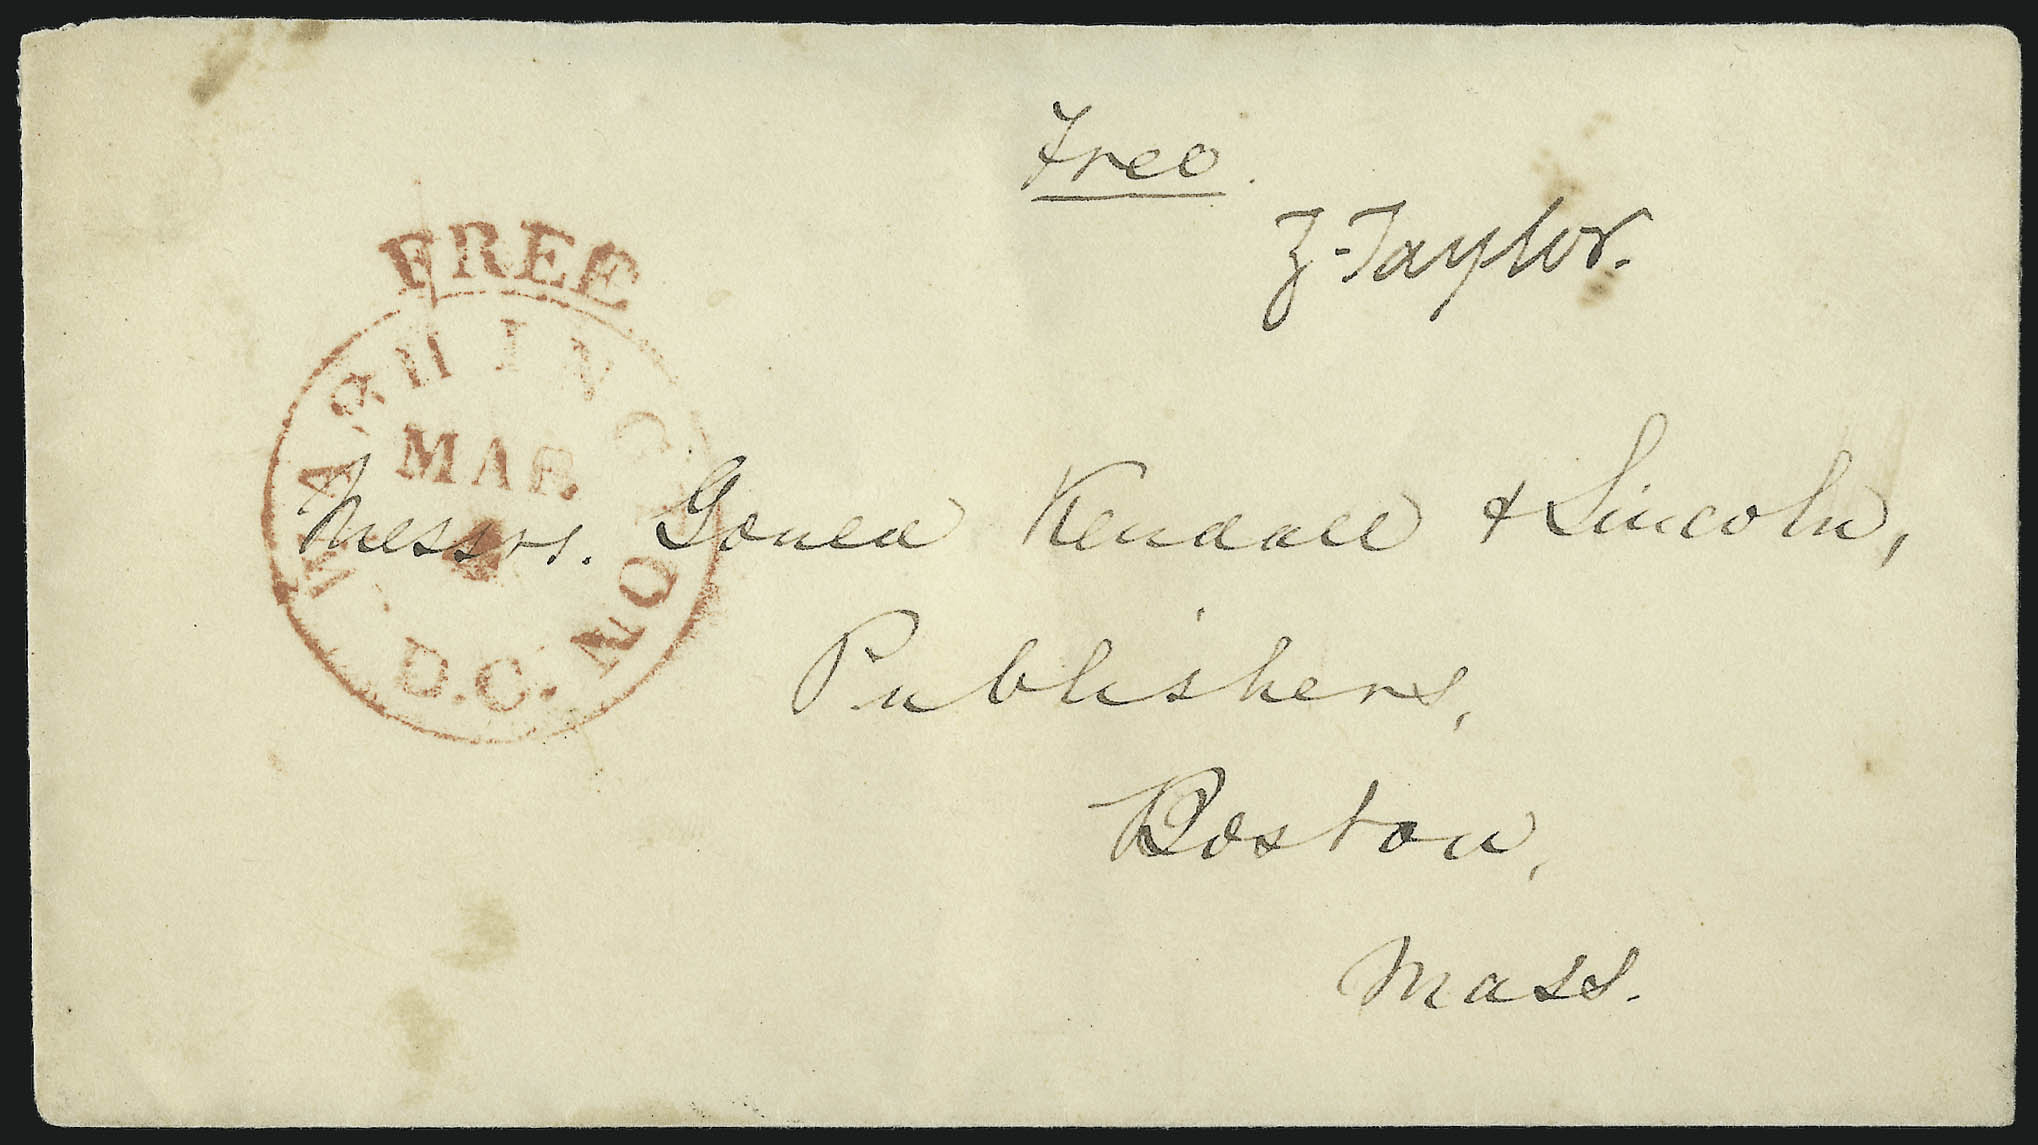 Free.
Z. Taylor.
FREE
WASHINGTON D.C.
MAR
Messrs. Gould Kendall & Lincoln,
Publishers,
Boston,
Mass.